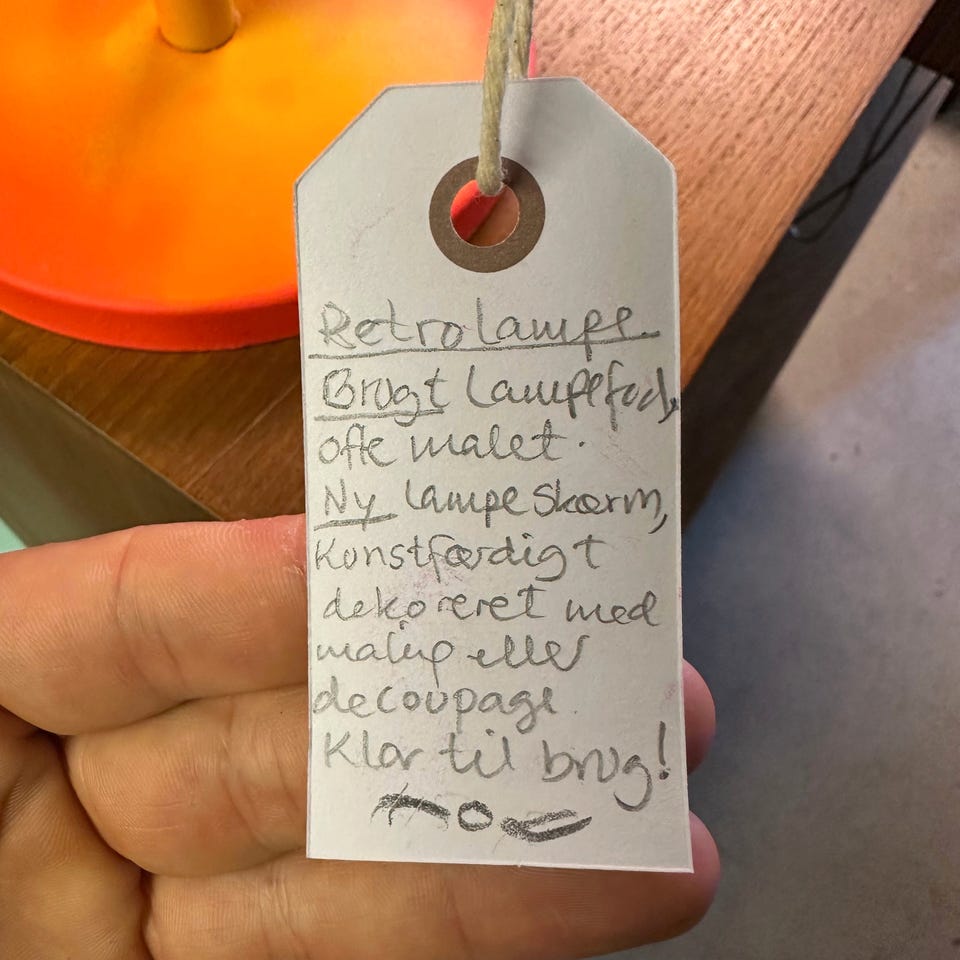 Retrolampe
Brugt Lampefod,
ofte malet.
Ny lampeskærm,
Kunstfærdigt
dekoreret med
maling eller
decoupage.
Klar til brug!